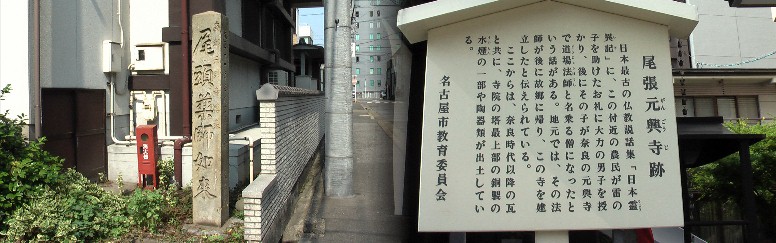 尾頭薬師如来
消火器
尾張元興寺跡
がんごうじ
日本最古の仏教説話集「日本霊
異記」に、この付近の農民が雷の
子を助けたお礼に大力の男子を授
かり、後にその子が奈良の元興寺
で道場法師と名乗る僧になったと
いう話がある。地元では、その法
師が後に故郷に帰り、この寺を建
立したと伝えられている。
ここからは、奈良時代以降の瓦
と共に、寺院の塔最上部の銅製の
水煙の一部や陶器類が出土してい
る。
名古屋市教育委員会